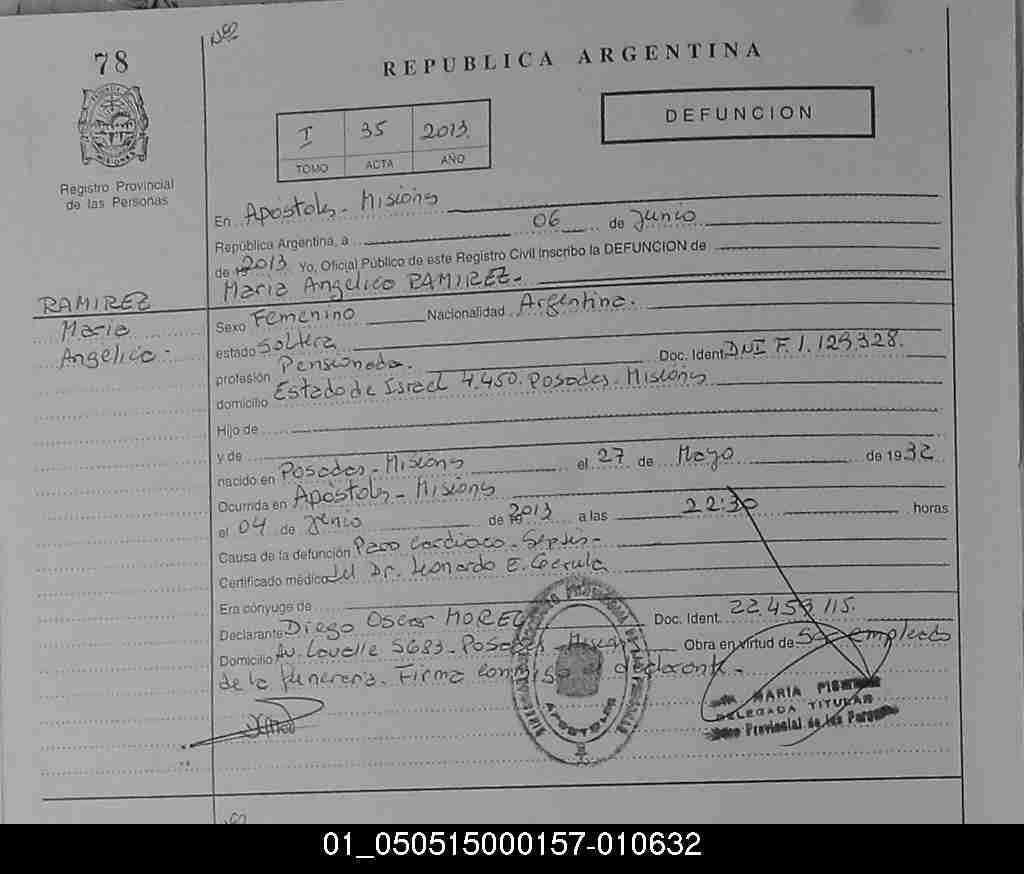 78
Nº2
REPUBLICA ARGENTINA
DEFUNCION
I 35 2013
TOMO ACTA AÑO
Registro Provincial
de las Personas
En Apóstoles - Misiones
República Argentina, a 06 de Junio
de 2013 Yo, Oficial Público de este Registro Civil inscribo la DEFUNCION de
Maria Angelica RAMIREZ -
RAMIREZ
Maria
Angelica -
Sexo Femenino Nacionalidad Argentina.
estado Soltera
profesión Pensionada. Doc. Ident. DNI F. 1.129.328.
domicilio Estado de Israel 4.450. Posadas. Misiones
Hijo de
y de
nacido en Posadas - Misiones el 27 de Mayo de 1932
Ocurrida en Apóstoles - Misiones
el 04 de Junio de 2013 a las 22:30 horas
Causa de la defunción Paro Cardiaco - Sepsis -
Certificado médico del Dr. Leonardo E.
Era cónyuge de
Declarante Diego Oscar Doc. Ident. 22.453.115.
Domicilio Av. Lavalle 5683 - Posadas - Obra en virtud de Ser empleado
de la funeraria. Firma conmigo el declarante -
APOSTOLES
MARIA
DELEGADA TITULAR
Provincial de las Personas
01_050515000157-010632